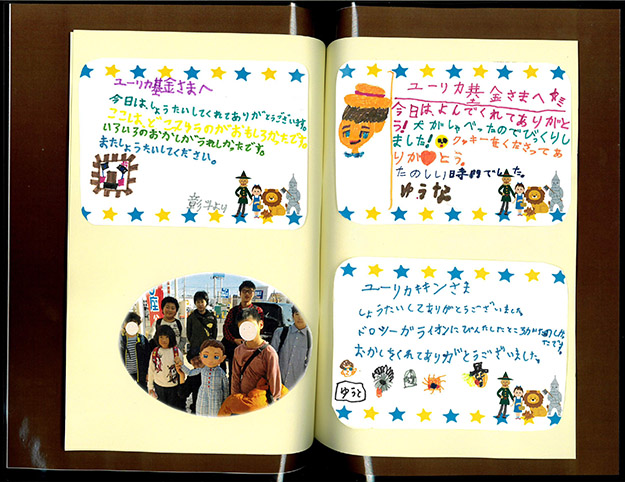 ユーリカ基金さまへ
今日は、しょうたいしてくれてありがとうございます。
ここは、どこヌタラのがおもしろかたです。
いろいろのおかしがうれしかたです。
またしょうたいしてください。
彰斗より
ユーリカ基金さまへ
今日は、よんでくれてありがと
う!犬がしゃべったのでびくりし
ました!クッキーをくださってあ
りがとう。
たのしい時間でした。
ゆうな
ユーリカキキンさま
しょうたいしてありがとうございました
ドロシーがライオンにびんたしたところが
です。
おかしをくれてありがとうございました。
ゆうと